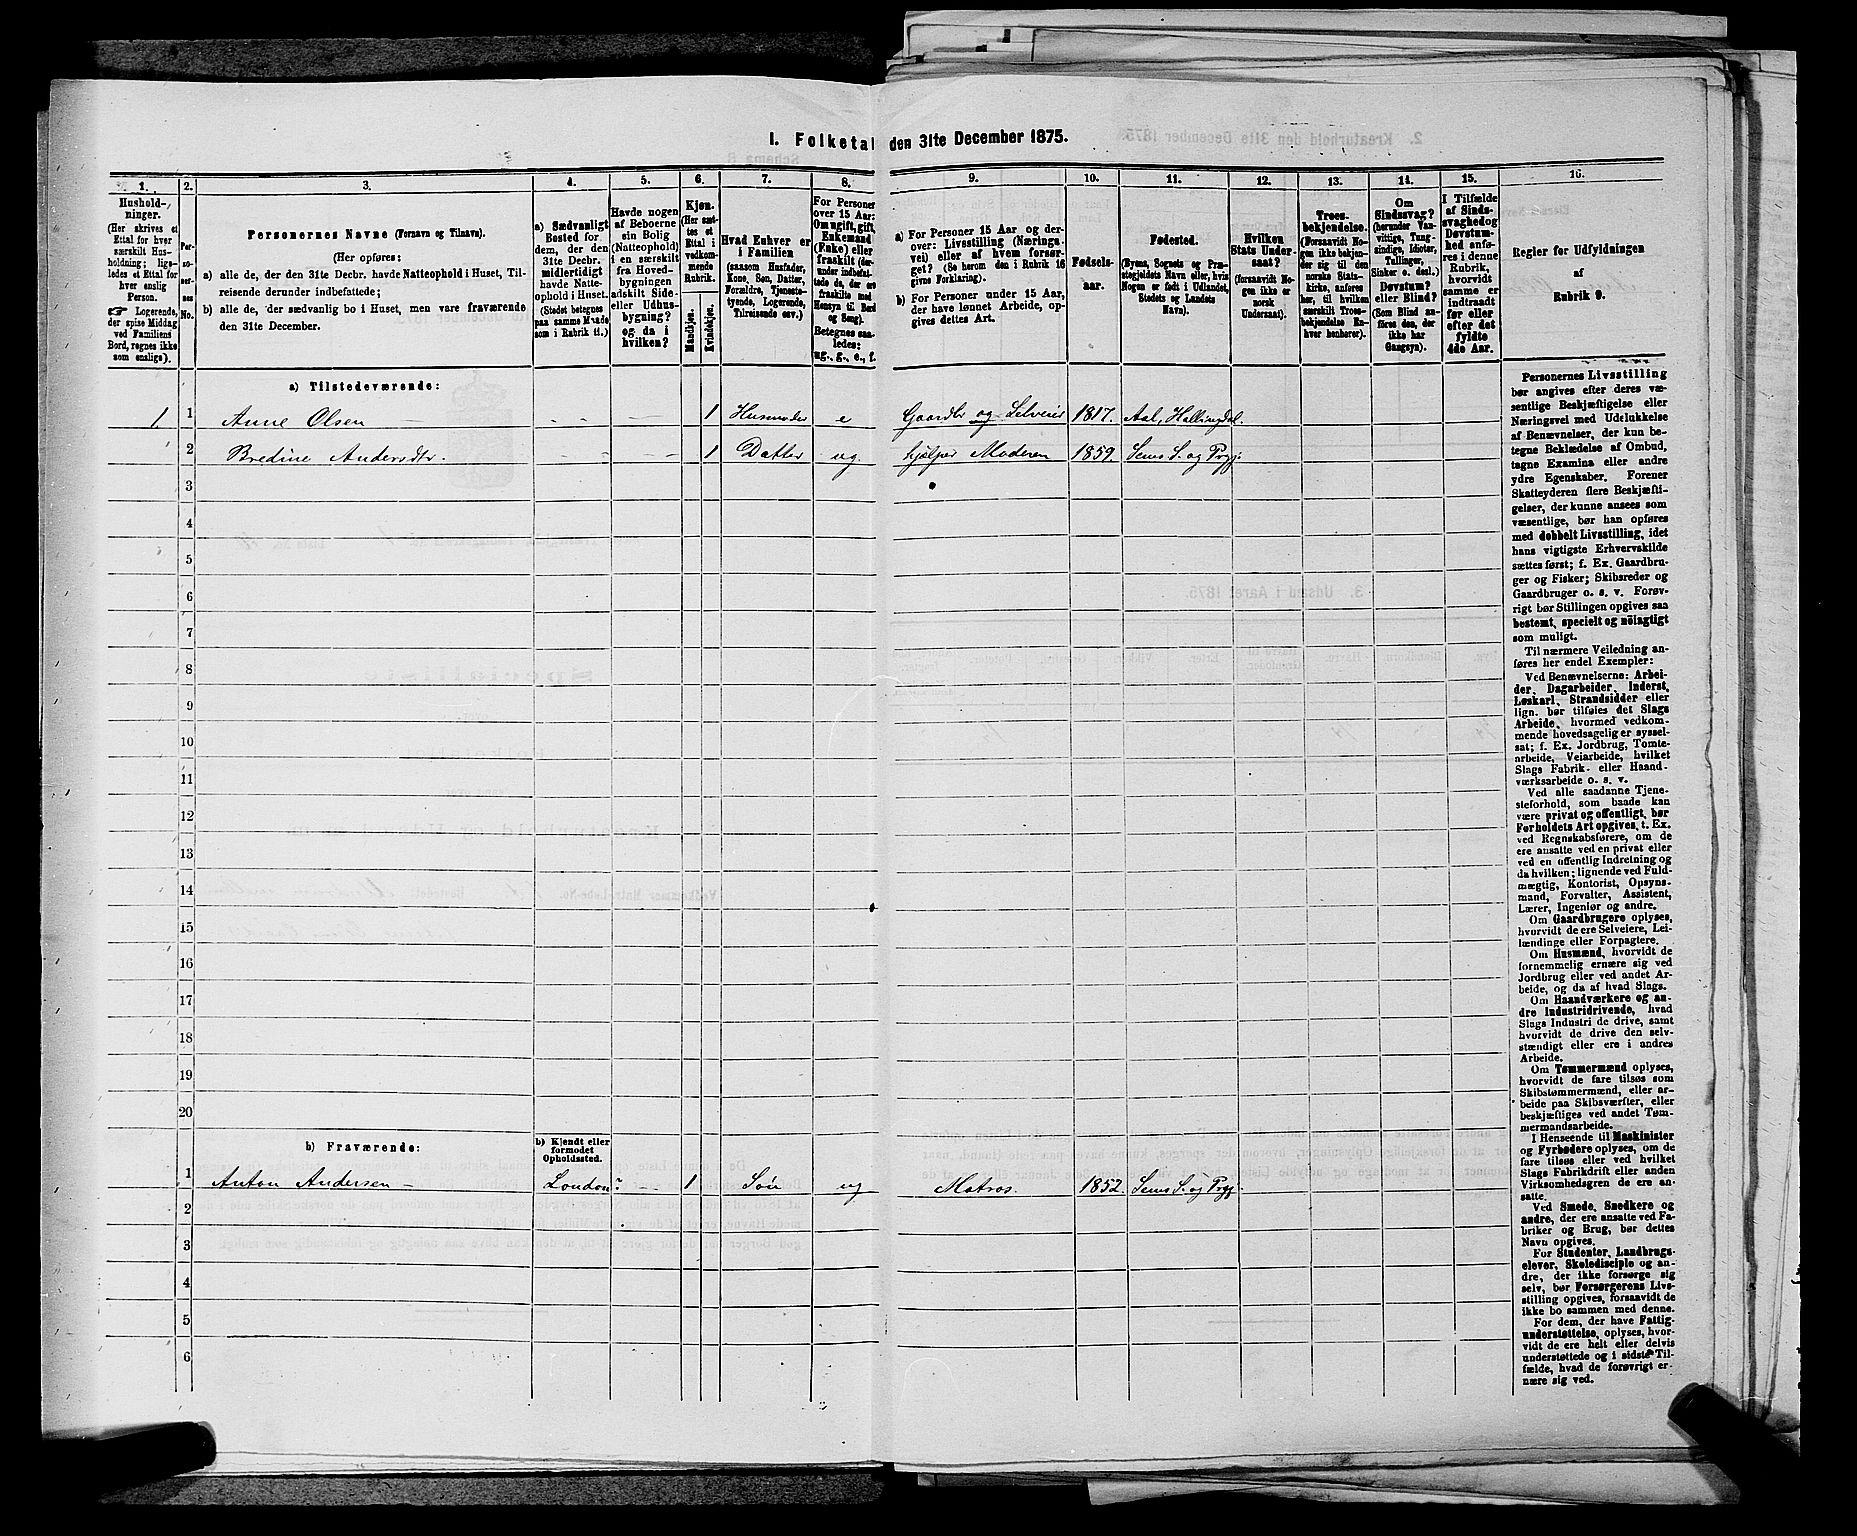 I. Folketal den 31te December 1875.
1. 2. 3. 4. 5. 6. 7. 8. 9. 10. 11. 12. 13. 14. 15. 16.
Hushold-
ninger.
(Her skrives et
Ettal for hver
særskilt Hus-
holdning; lig-
eledes et Ettal for
hver enslig
Person.
☞ Logerende,
der spise Middag
ved Familiens
Bord, regnes ikke
som enslige).
Per-
so-
ner-
nes
No.
Personernes Navne (Fornavn og Tilnavn).
(Her opføres:
a) alle de, der den 31te Decbr. havde Natteophold i Huset, Til-
reisende derunder indbefattede;
b) alle de, der sædvanlig bo i Huset, men vare fraværende
den 31te December.
a) Sædvanligt
Bosted for
dem, der den
31te Decbr.
midlertidigt
havde Natte-
ophold i Huset.
(Stedet betegnes
paa samme Maade
som i Rubrik 11.)
Havde nogen
af Beboerne
sin Bolig
(Natteophold)
i en særskilt
fra Hoved-
bygningen
adskilt Side-
eller Udhus-
bygning?
og da i
hvilken?
Kjøn.
(Her sæt-
tes et
Ettal i
vedkom-
mende
Rubrik.
Mandkjøn.
Kvindekjøn.
Hvad Enhver er
i Familien
(saasom Husfader,
Kone, Søn, Datter,
Forældre, Tjeneste-
tyende, Logerende,
Tilreisende osv.)
For Personer
over 15 Aar:
Om ugift, gift,
Enkemand
(Enke) eller
fraskilt (der-
under indbefat-
tede de, der ere
fraskilte med
Hensyn til Bord
og Seng).
Betegnes saa-
ledes:
ug., g., e., f.
a) For Personer 15 Aar og der-
over: Livsstilling (Nærings-
vei) eller af hvem forsør-
get? (Se herom den i Rubrik 16
givne Forklaring).
b) For Personer under 15 Aar,
der have lønnet Arbeide, op-
gives dettes Art.
Fødsels-
aar.
Fødested.
(Byens, Sognets og Præ-
stegjeldets Navn eller, hvis
Nogen er født i Udlandet,
Stedets og Landets
Navn).
Hvilken
Stats Under-
saat?
(forsaavidt No-
gen ikke er
norsk
Undersaat).
Troes-
bekjendelse.
(Forsaavidt No-
gen ikke bekjen-
der sig til den
norske Stats-
kirke, anføres
her, til hvilken
særskilt Troes-
bekjendelse En-
hver henhører).
Om
Sindssvag?
(herunder Van-
vittige, Tung-
sindige, Idioter,
Tullinger,
Sinker o. desl.)
Døvstum?
eller Blind?
(Som Blind an-
føres den, der
ikke har
Gangsyn).
I Tilfælde
af Sinds-
svaghed og
Døvstum-
hed anfø-
res i denne
Rubrik,
hvorvidt
samme er
indtraadt
før eller
efter det
fyldte
4de Aar.
Regler for Udfyldningen
af
Rubrik 9.
a) Tilstedeværende:
1 1 Anne Olsen - - - 1 Husmoder e Gaardbr og Selveier 1817. Aal, Hallingdal.
2 Bredine Andersdtr. - - - 1 Datter ug. hjælper Moderen 1859. Sems S. og Prgj.
3
4
5
6
7
8
9
10
11
12
13
14
15
16
17
18
19
20
b) Fraværende:
b) Kjendt eller
formodet
Opholdssted.
1 Anton Andersen - London? - 1 Søn ug Matros. 1852. Sems S. og Prgj.
2
3
4
5
6
Personernes Livsstilling
bør angives efter deres væ-
sentlige Beskjæftigelse eller
Næringsvei med Udelukkelse
af Benævnelser, der kun be-
tegne Beklædelse af Ombud,
tagne Examina eller andre
ydre Egenskaber. Forener
Skatteyderen flere Beskjæfti-
gelser, der kunne ansees som
væsentlige, bør han opføres
med dobbelt Livsstilling, idet
hans vigtigste Erhvervskilde
sættes først; f. Ex. Gaardbru-
ger og Fisker; Skibsreder og
Gaardbruger o. s. v. Forøv-
rigt bør Stillingen opgives saa
bestemt, specielt og nöiagtigt
som muligt.
Til nærmere Veiledning an-
føres her endel Exempler:
Ved Benævnelserne: Arbei-
der, Dagarbeider, Inderst,
Løskarl, Strandsidder eller
lign. bør tilføies det Slags
Arbeide, hvormed vedkom-
mende hovedsagelig er syssel-
sat; f. Ex. Jordbrug, Tomte-
arbeide, Veiarbeide, hvilket
Slags Fabrik- eller Haand-
værksarbeide o. s. v.
Ved alle saadanne Tjene-
steforhold, som baade kan
være privat og offentligt, bør
Forholdets Art opgives, t. Ex.
ved Regnskabsførere, om de
ere ansatte ved en privat eller
ved en offentlig Indretning og
da hvilken; lignende ved Fuld-
mægtig, Kontorist, Opsyns-
mand, Forvalter, Assistent,
Lærer, Ingeniør og andre.
Om Gaardbrugere oplyses,
hvorvidt de ere Selveiere, Lei-
lændinge eller Forpagtere.
Om Husmænd, hvorvidt de
fornemmelig ernære sig ved
Jordbrug eller ved andet Ar-
beide, og da af hvad Slags.
Om Haandværkere og an-
dre Industridrivende, hvad
Slags Industri de drive, samt
hvorvidt de drive den selv-
stændigt eller ere i andres
Arbeide.
Om Tømmermænd oplyses,
hvorvidt de fare tilsøs som
Skibstømmermænd, eller ar-
beide paa Skibsværfter, eller
beskjæftiges ved andet Tøm-
mermandsarbeide.
I Henseende til Maskinister
og Fyrbødere oplyses, om de
fare tilsøs eller ved hvilket
Slags Fabrikdrift eller anden
Virksomhedsgren de ere an-
satte.
Ved Smede, Snedkere og
andre, der ere ansatte ved Fa-
briker og Brug, bør dettes
Navn opgives.
For Studenter, Landbrugs-
elever, Skoledisciple og an-
dre, der ikke forsørge sig
selv, bør Forsørgerens Livs-
stilling opgives, forsaavidt de
ikke bo sammen med denne.
For dem, der have Fattig-
understøttelse, oplyses, hvor-
vidt de ere helt eller delvis
understøttede og i sidste Til-
fælde, hvad de forøvrigt er-
nære sig ved.